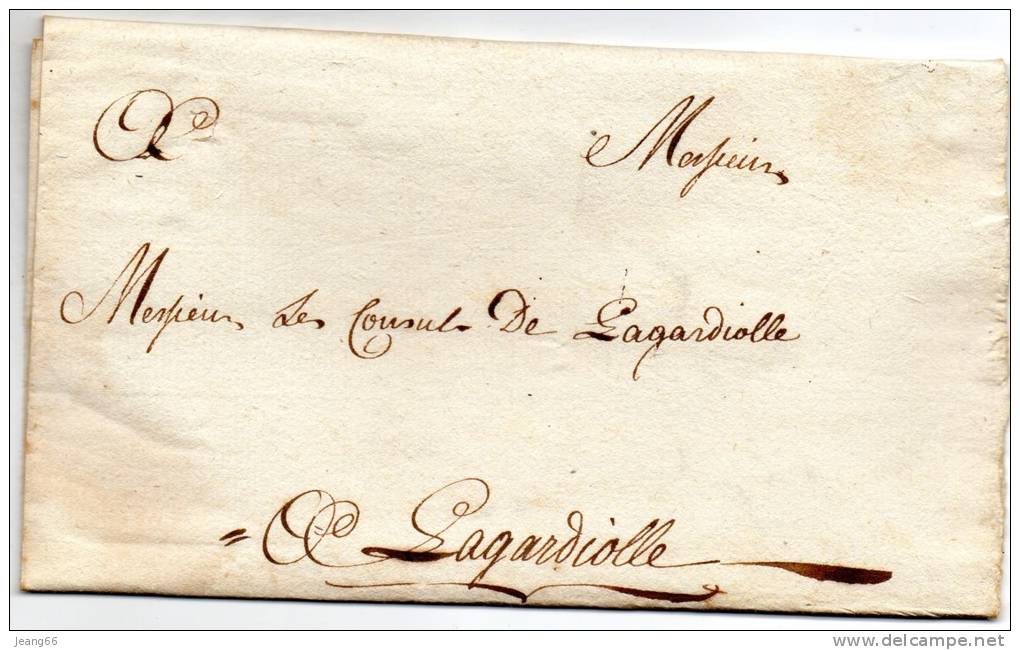 A Messieurs
Messieurs Les Consuls De Lagardiolle
= A Lagardiolle
jeang66
www.delcampe.net